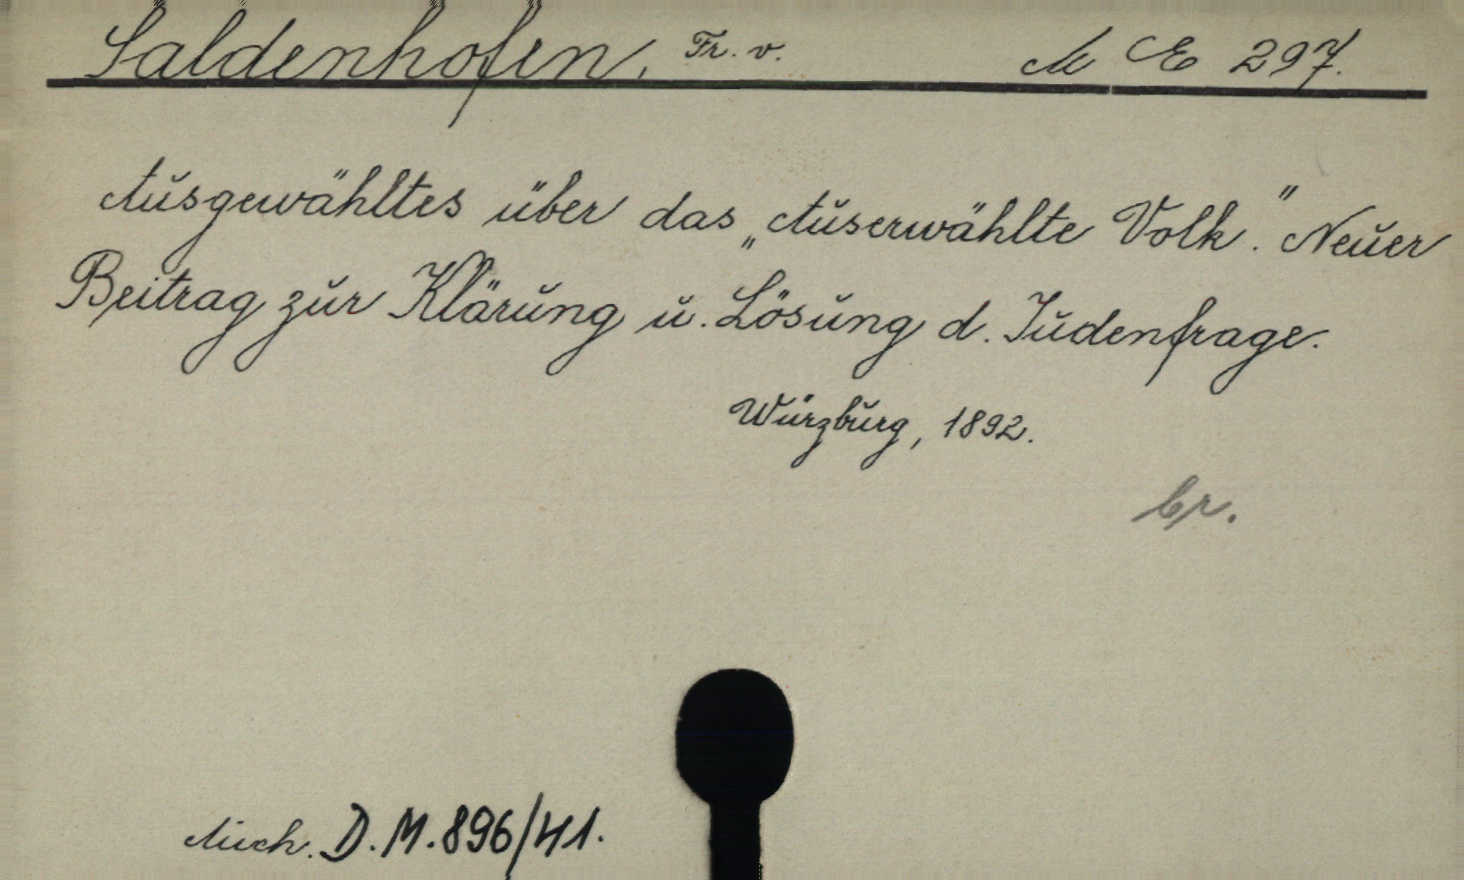 Saldenhofen, Fr. v. M E 297.
Ausgewähltes über das „Auserwählte Volk." Neuer
Beitrag zur Klärung u. Lösung d. Judenfrage.
Würzburg, 1892.
br.
Auch. D. M. 896/41.